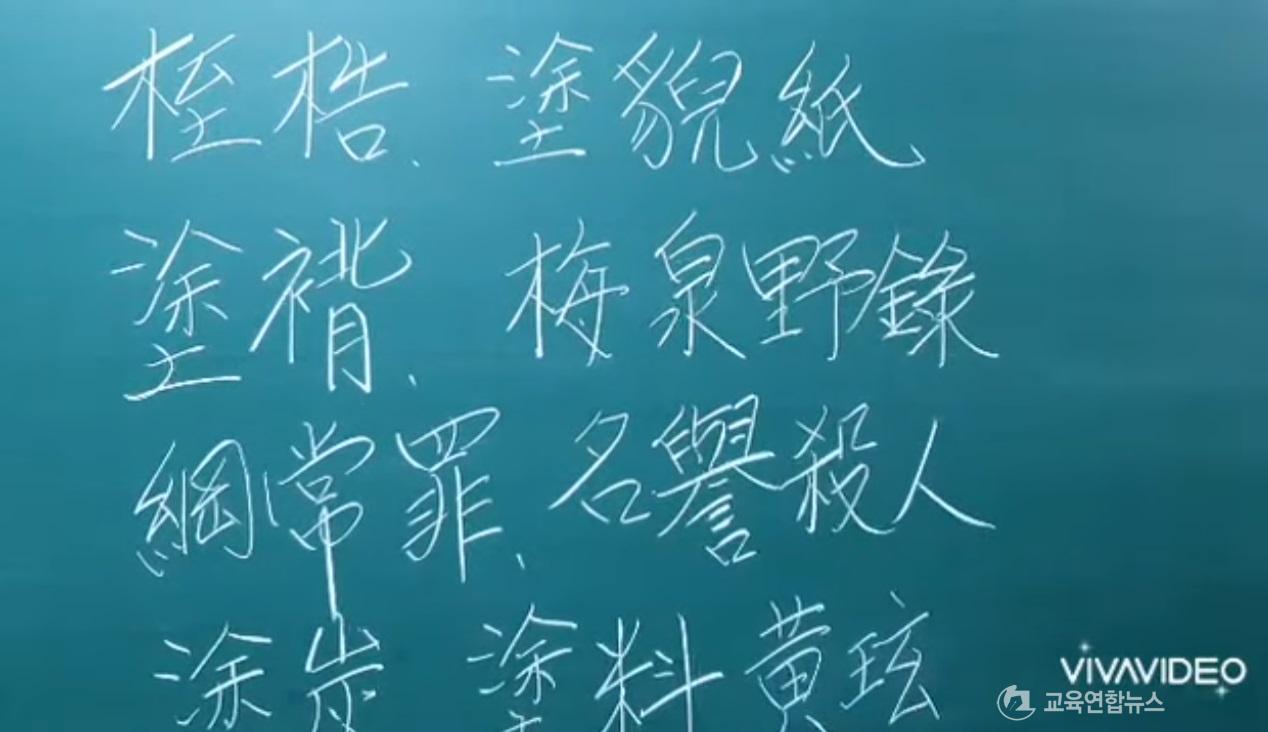 桎梏、塗貌紙
塗褙、梅泉野錄
綱常罪、名譽殺人
塗炭 塗料 黃玹
VIVAVIDEO
교육연합뉴스